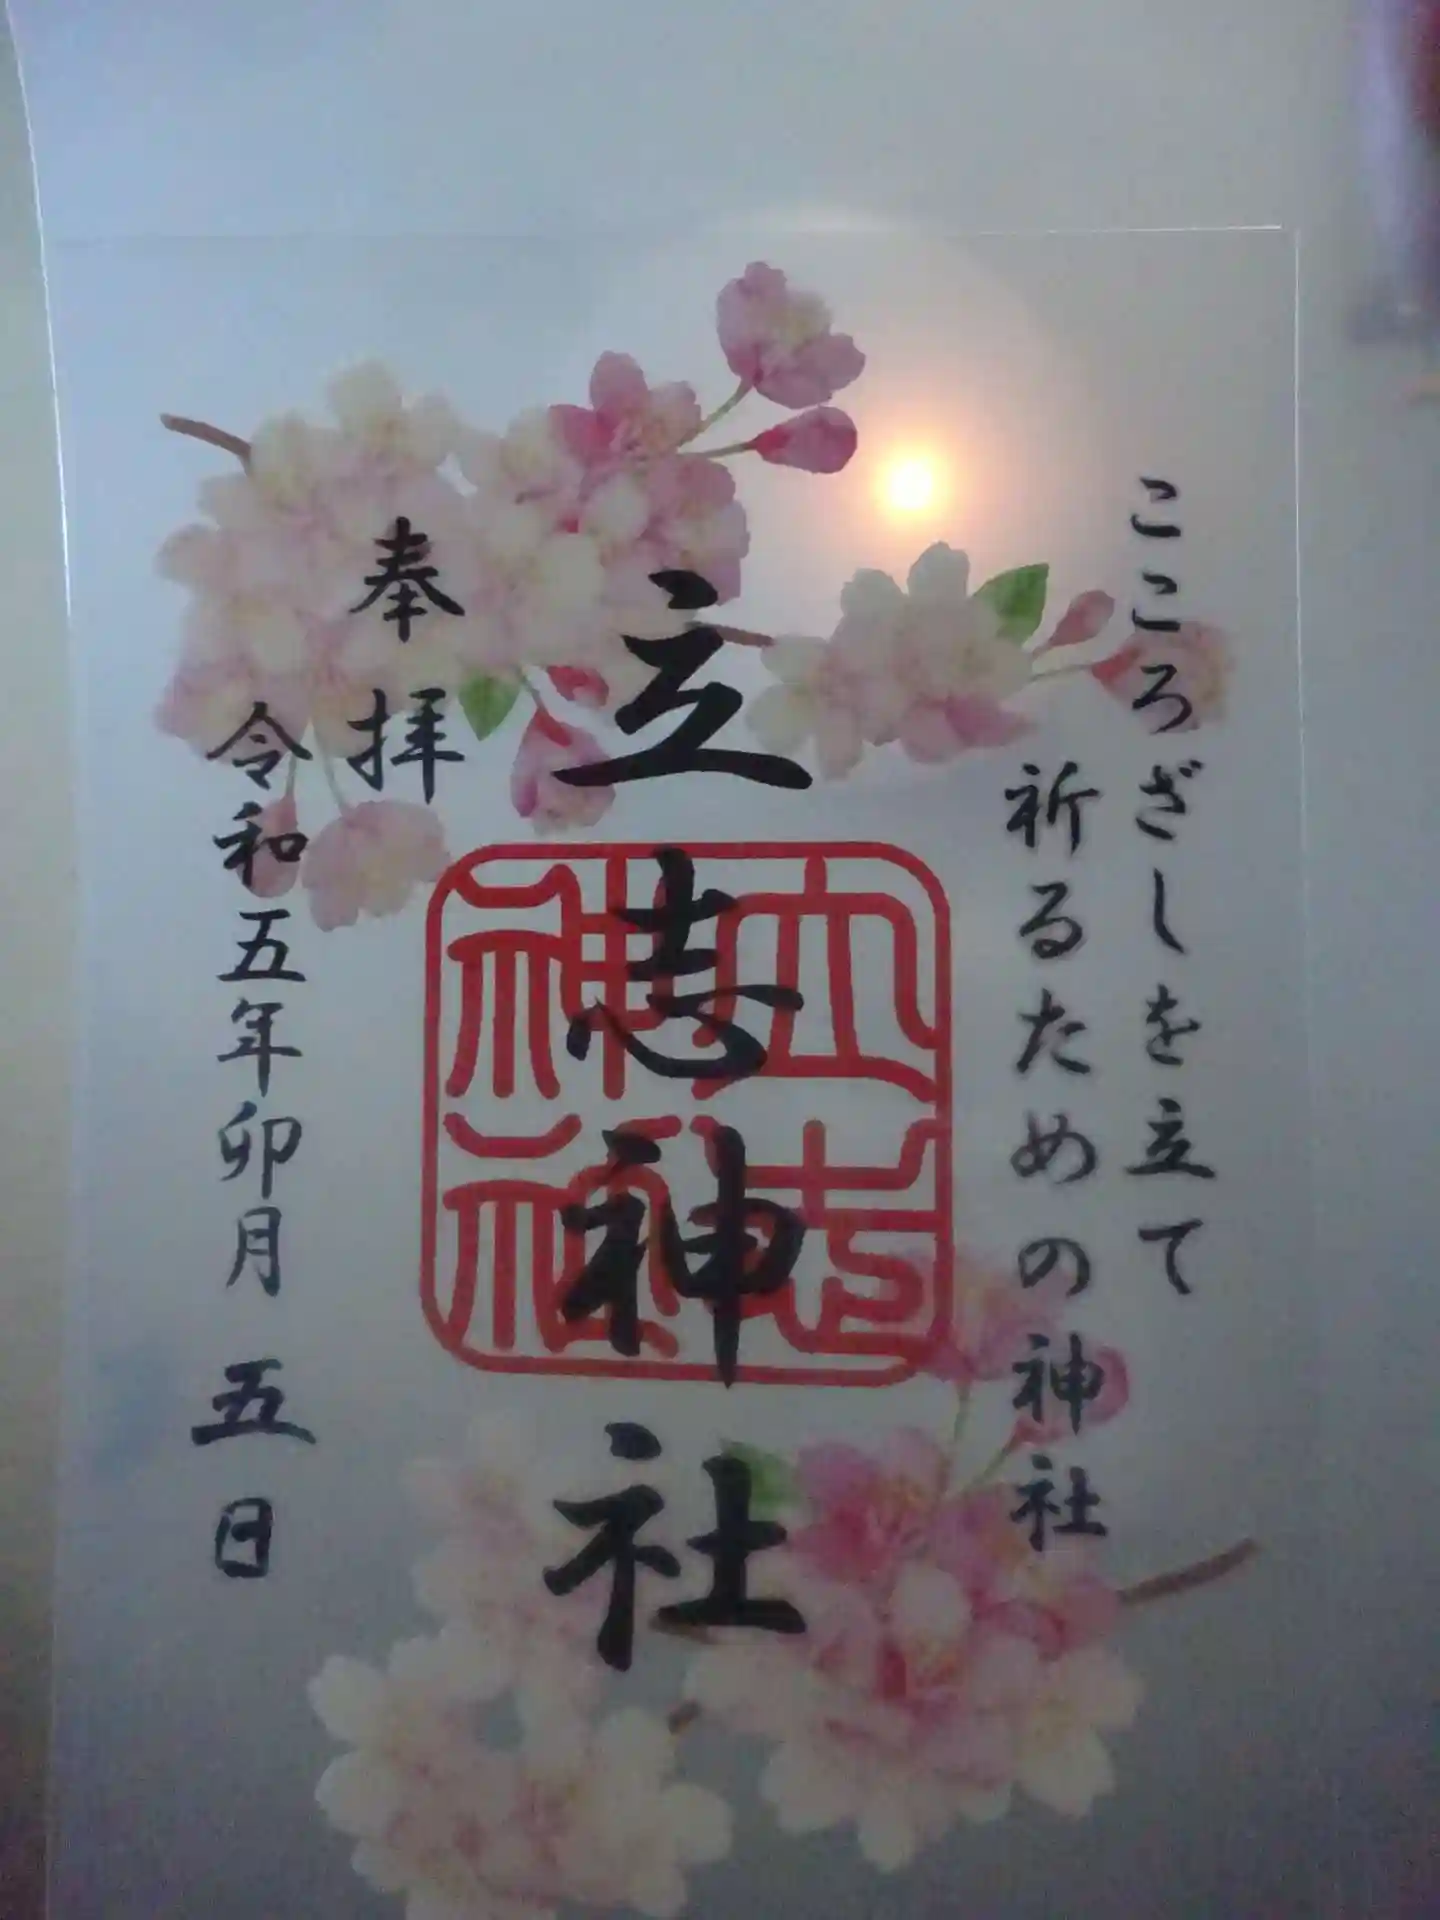 こころざしを立て
祈るための神社
立志神社
奉拝
令和五年卯月 五日
立志神社